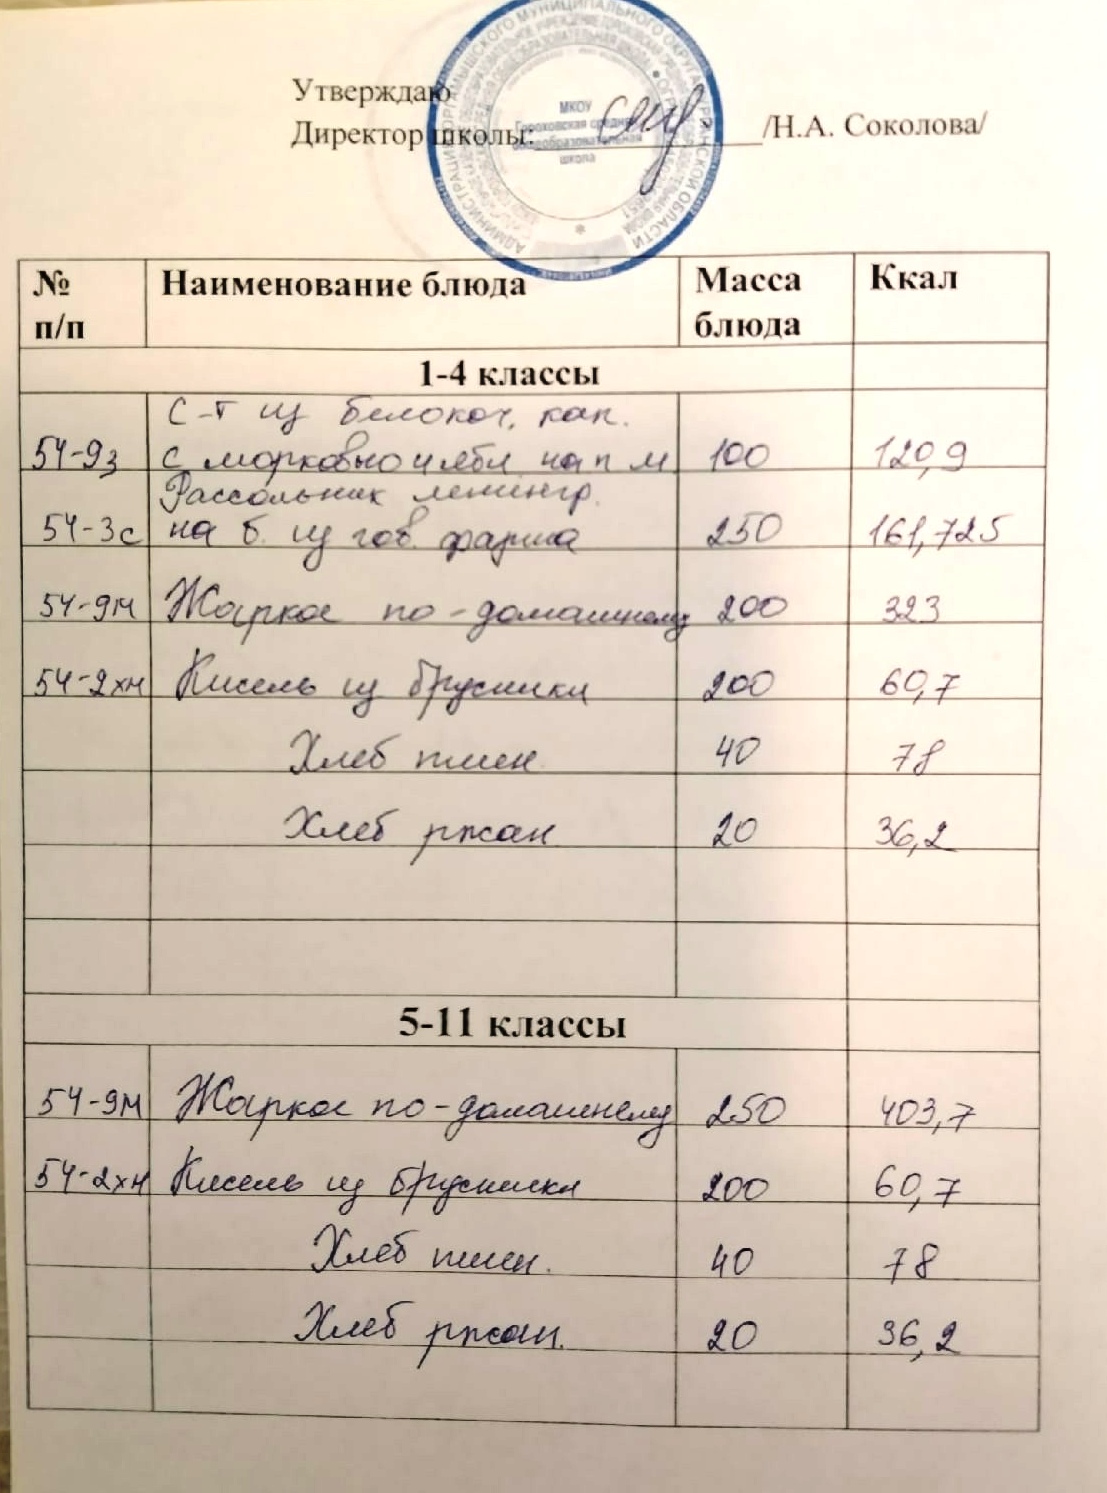 Утверждаю
Директор школы: /Н.А. Соколова/
МКОУ
Гороховская средняя
общеобразовательная
школа
№ п/п Наименование блюда Масса блюда Ккал
1-4 классы
С-т из белокоч. кап.
54-9з с морковью и ябл на п м 100 120,9
Рассольник ленингр.
54-3с на б. из гов. фарша 250 161,725
54-9м Жаркое по-домашнему 200 323
54-2хн Кисель из брусники 200 60,7
Хлеб пшен. 40 78
Хлеб ржан 20 36,2
5-11 классы
54-9м Жаркое по-домашнему 250 403,7
54-2хн Кисель из брусники 200 60,7
Хлеб пшен. 40 78
Хлеб ржан. 20 36,2